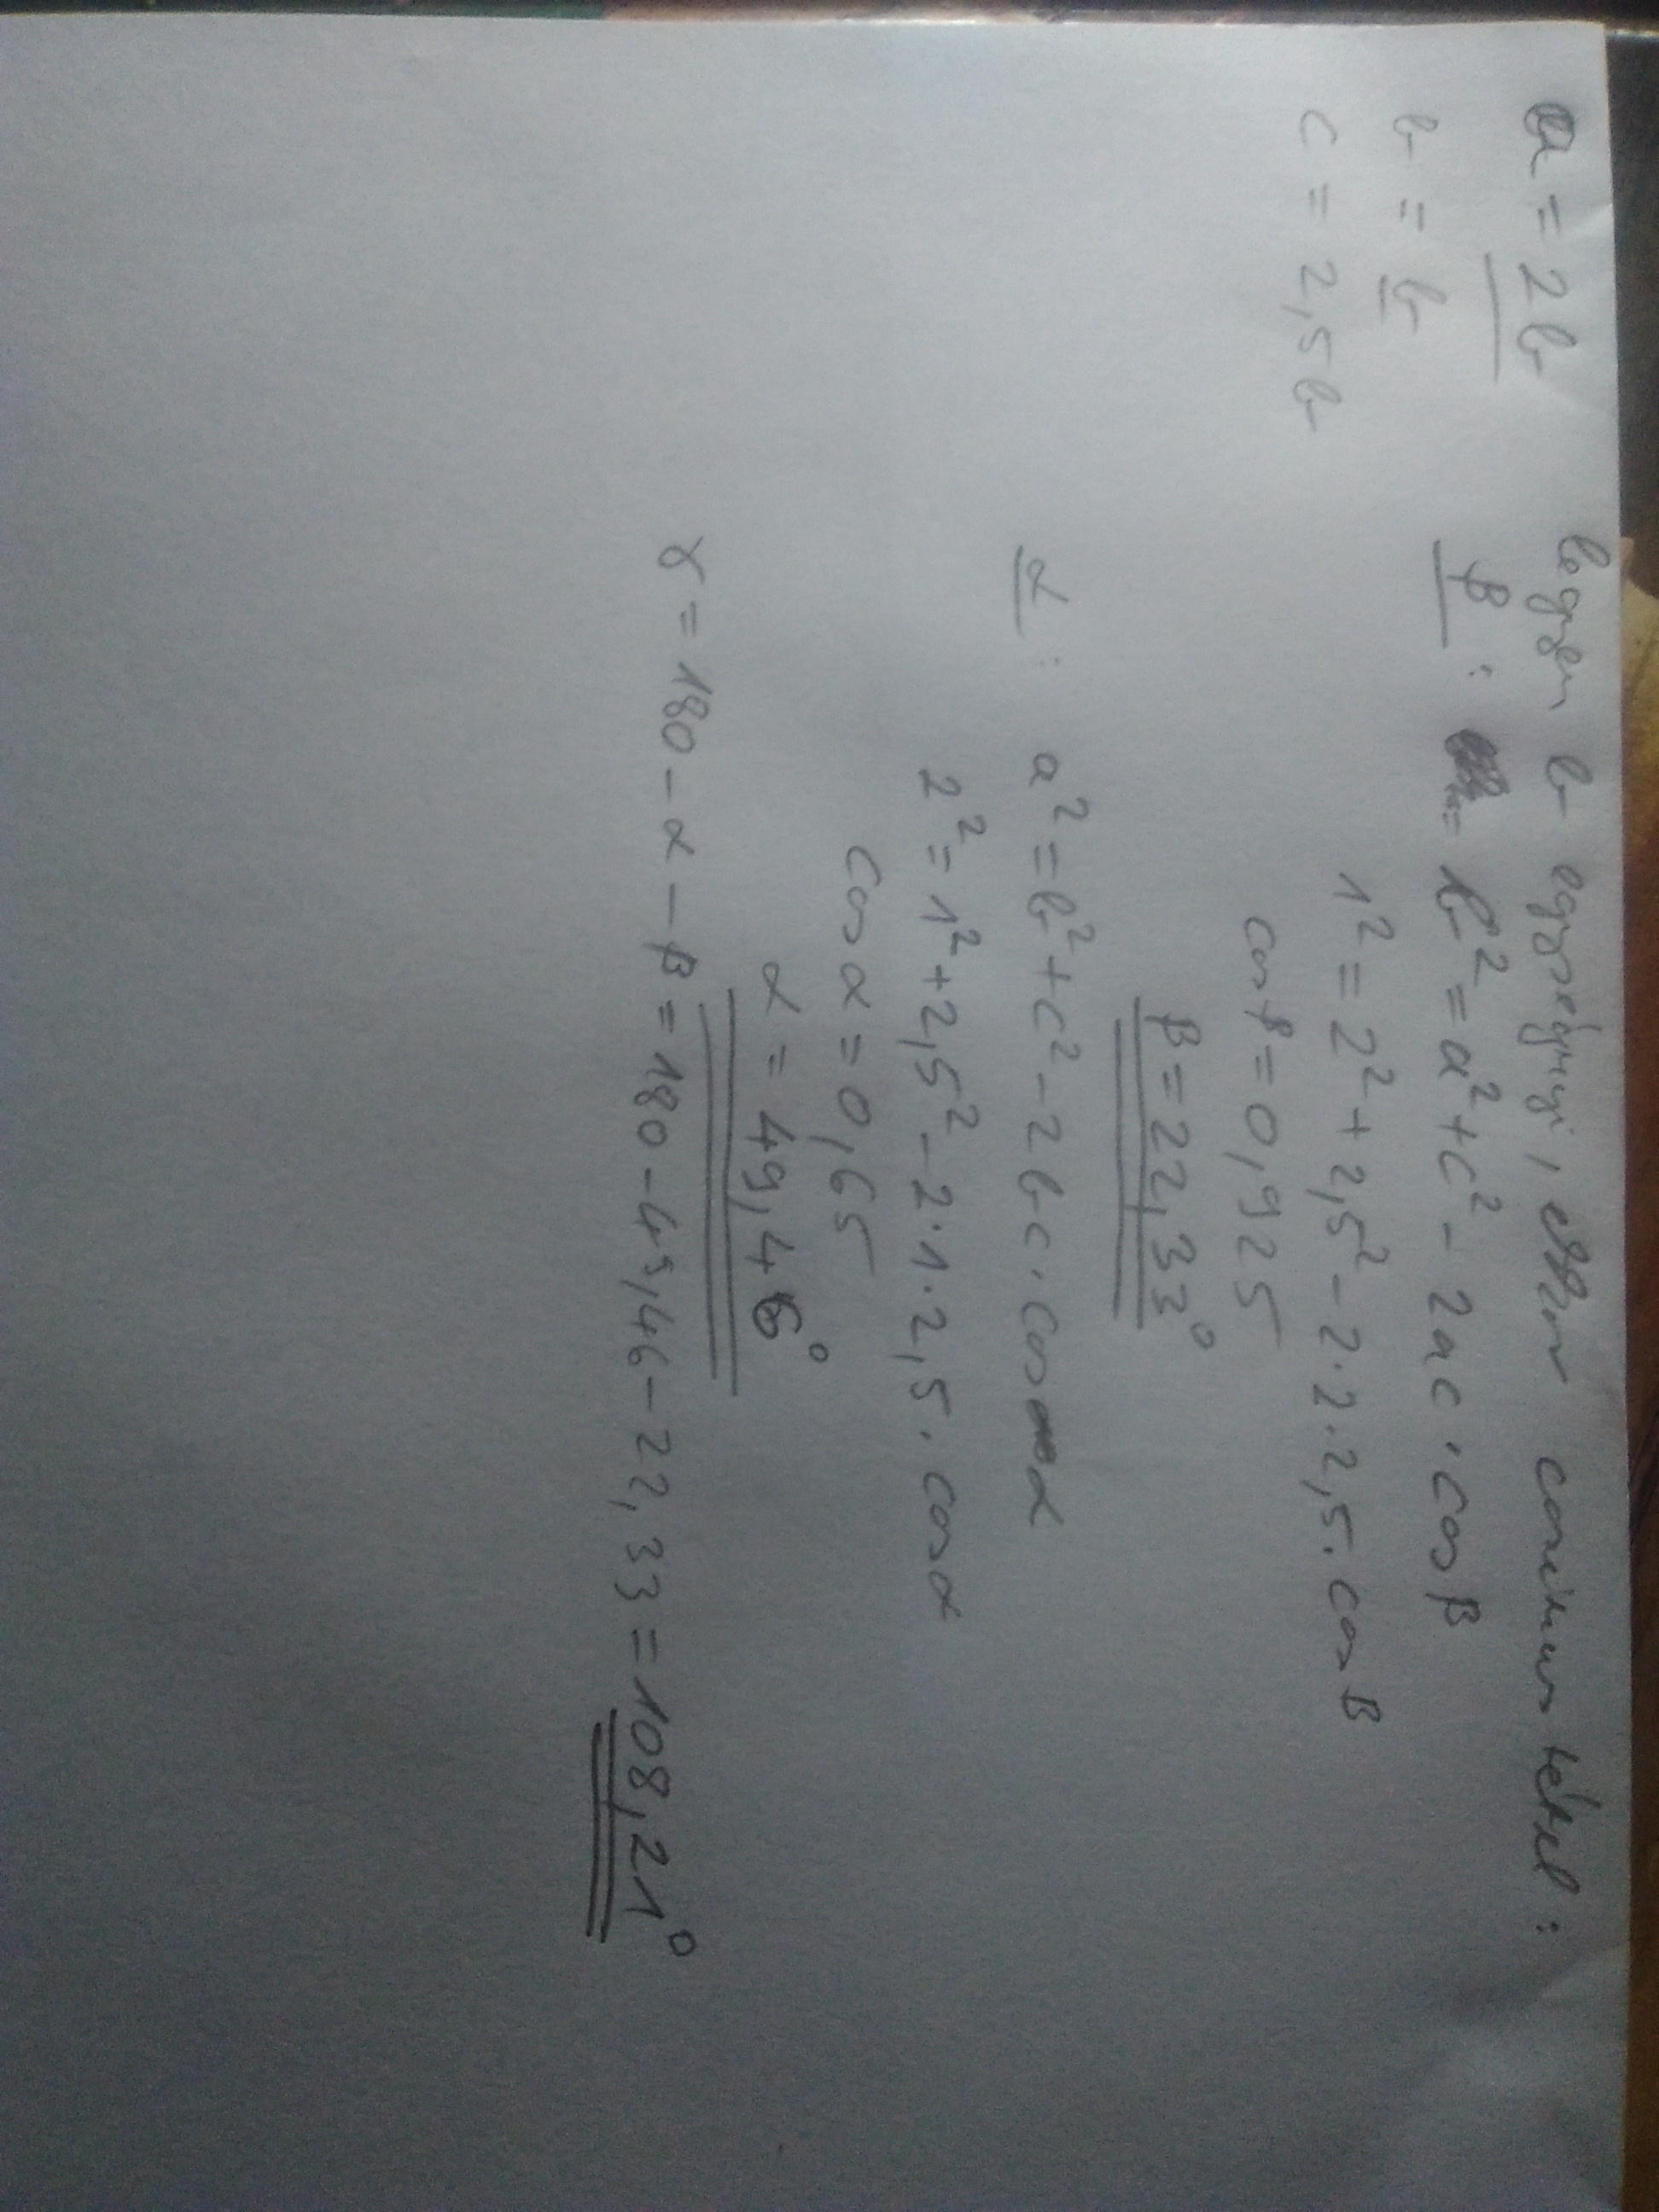 a = 2b
b = b
c = 2,5b
legyen b egységnyi, ekkor cosinus tétel:
β: b² = a² + c² - 2ac · cos β
1² = 2² + 2,5² - 2·2·2,5 · cos β
cos β = 0,925
β = 22,33°
α: a² = b² + c² - 2bc · cos α
2² = 1² + 2,5² - 2·1·2,5 · cos α
cos α = 0,65
α = 49,46°
γ = 180 - α - β = 180 - 49,46 - 22,33 = 108,21°